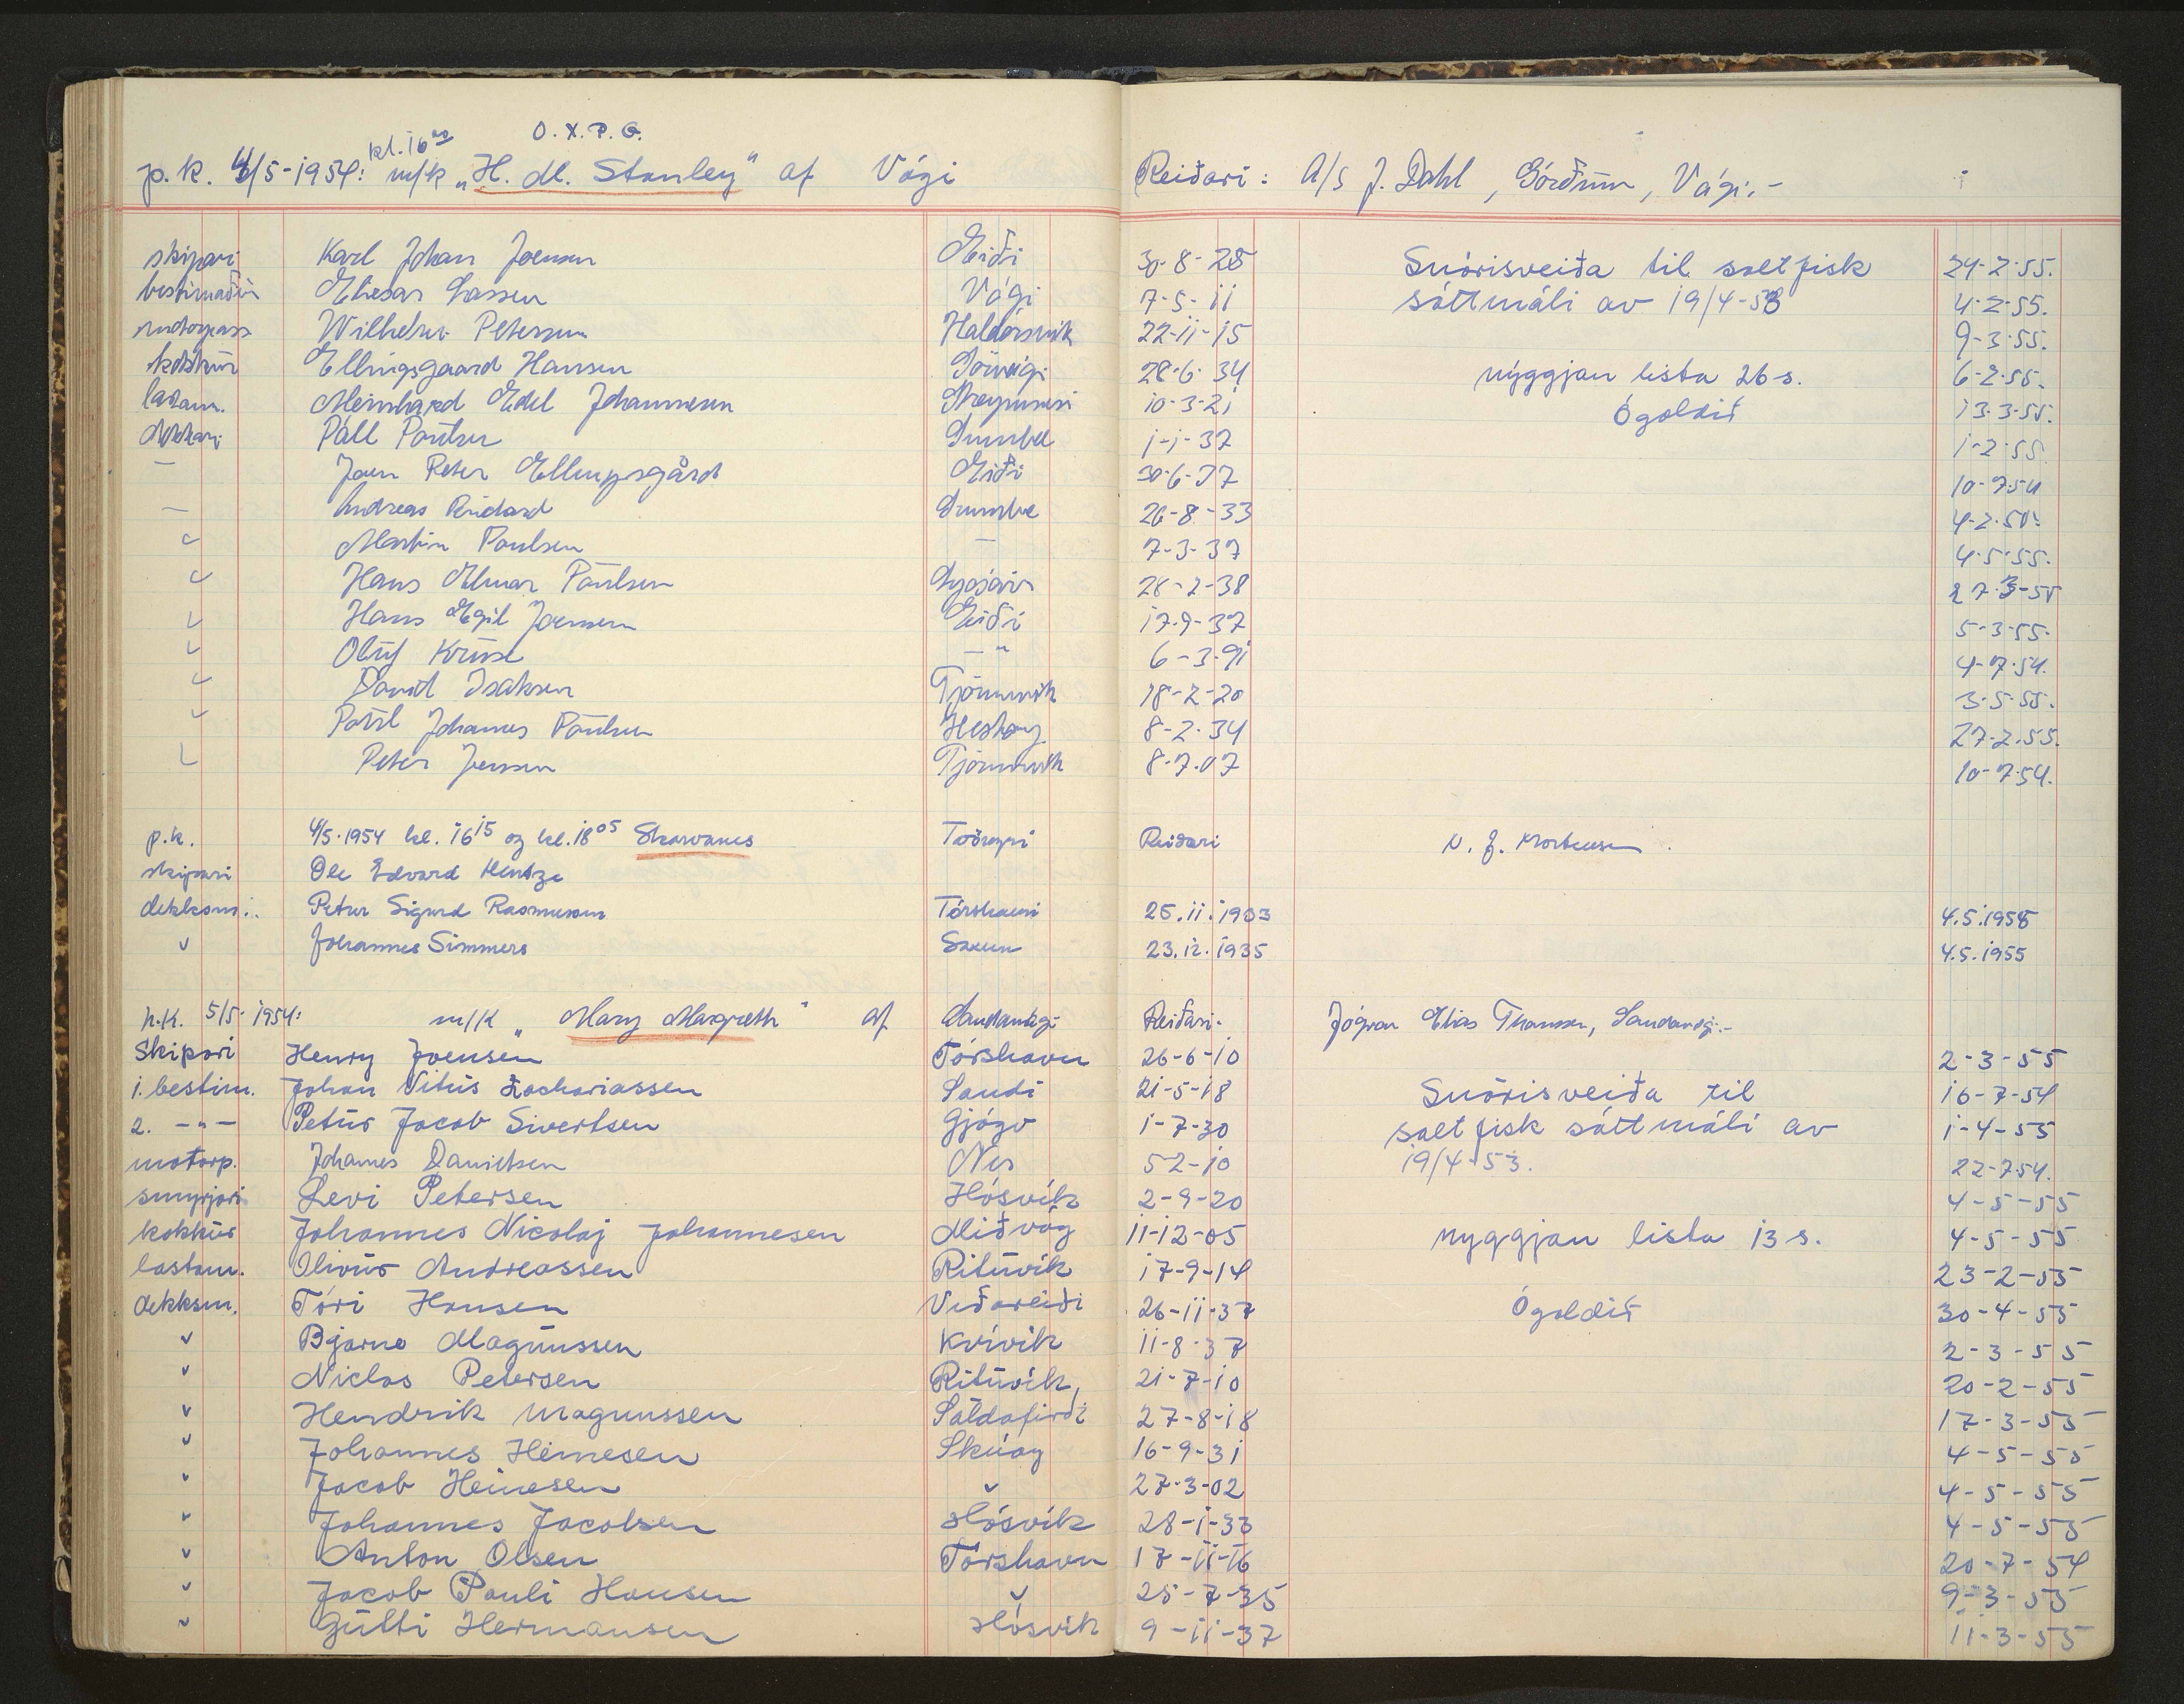 O. X. P. G.
p.k. 4/5-1954: kl. 16 m/k „H. M. Stanley" af Vági Reiðari: A/S J. Dahl, Vági.-
skipari Karl Johan Joensen Eiði 30-8-28 Snórisveiða til saltfisk 24-2-55.
bestimaður Eliesar Vági 7-5-11 sáttmáli av 19/4-53 4-2-55.
motorpass Wilhelm Petersen Haldórsvík 22-11-15 9-3-55.
kokkur Ellingsgaard Hansen 28-6-34 nýggjan lista 26 s. 6-2-55.
lastam. Meinhard Edel Johannesen 10-3-21 Ógoldið 13-3-55.
dekkari Páll Poulsen Sumbø 1-1-37 1-2-55.
— Joen Peter Ellingsgård Eiði 30-6-37 10-7-54
— Andreas Sumbø 26-8-33
" Martin Poulsen — 7-3-37 4-5-55.
" Hans Elmar Poulsen 28-2-38
" Hans Egil Joensen Eiði 17-9-37 5-3-55.
" Oluf Kruse — " 6-3-91 4-7-54.
" David Isaksen Tjørnuvík 18-2-20 3-5-55.
" Poul Johannes Poulsen Hestoy 8-2-34 27-2-55.
" Peter Jensen Tjørnuvík 8-7-07 10-7-54.
p.k. 4/5-1954 kl. 16 15 og kl. 18 05 Skarvanes Toðrayni Reiðari N. J. Mortensen.
skipari Ole Edvard Hentze
dekksm. Petur Sigurd Rasmussen Tórshavn 25.11.1903 4.5.1955
" Johannes Simmers Saxun 23.12.1935 4.5.1955
p.k. 5/5-1954: m/k „Mary Margreth" af Sandavági Reiðari- Jógvan Elias Thomsen, Sandavági.-
Skipari Henry Joensen Tórshavn 26-6-10 2-3-55
1. bestim. Johan Vitus Zachariassen Sandi 21-5-18 Snórisveiða til 16-7-54
2. -"- Petur Jacob Sivertsen Gjógv 1-7-30 saltfisk sáttmáli av 1-4-55
motorp. Johannes Danielsen Nes 5-2-10 19/4-53. 22-7-54.
smyrjari Levi Petersen Hósvík 2-9-20 4-5-55
kokkur Johannes Nicolaj Johannesen Miðvág 11-12-05 nyggjan lista 13 s. 4-5-55
lastam. Olivur Andreassen Rituvík 17-9-14 23-2-55
dekksm. Tóri Hansen Viðareiði 26-11-37 Ógoldið 30-4-55
" Bjarne Magnussen Kvívík 11-8-37 2-3-55
" Niclas Petersen Rituvík, 21-7-10 20-2-55
" Hendrik Magnussen Saldafirði 27-8-18 17-3-55
" Johannes Heinesen Skúoy 16-9-31 4-5-55
" Jacob Heinesen " 27-3-02 4-5-55
" Johannes Jacobsen Hósvík 28-1-33 4-5-55
" Anton Olsen Tórshavn 17-11-16 20-7-54
" Jacob Pauli Hansen " 25-7-35 9-3-55
" Gutti Hermansen Hósvík 9-11-37 11-3-55